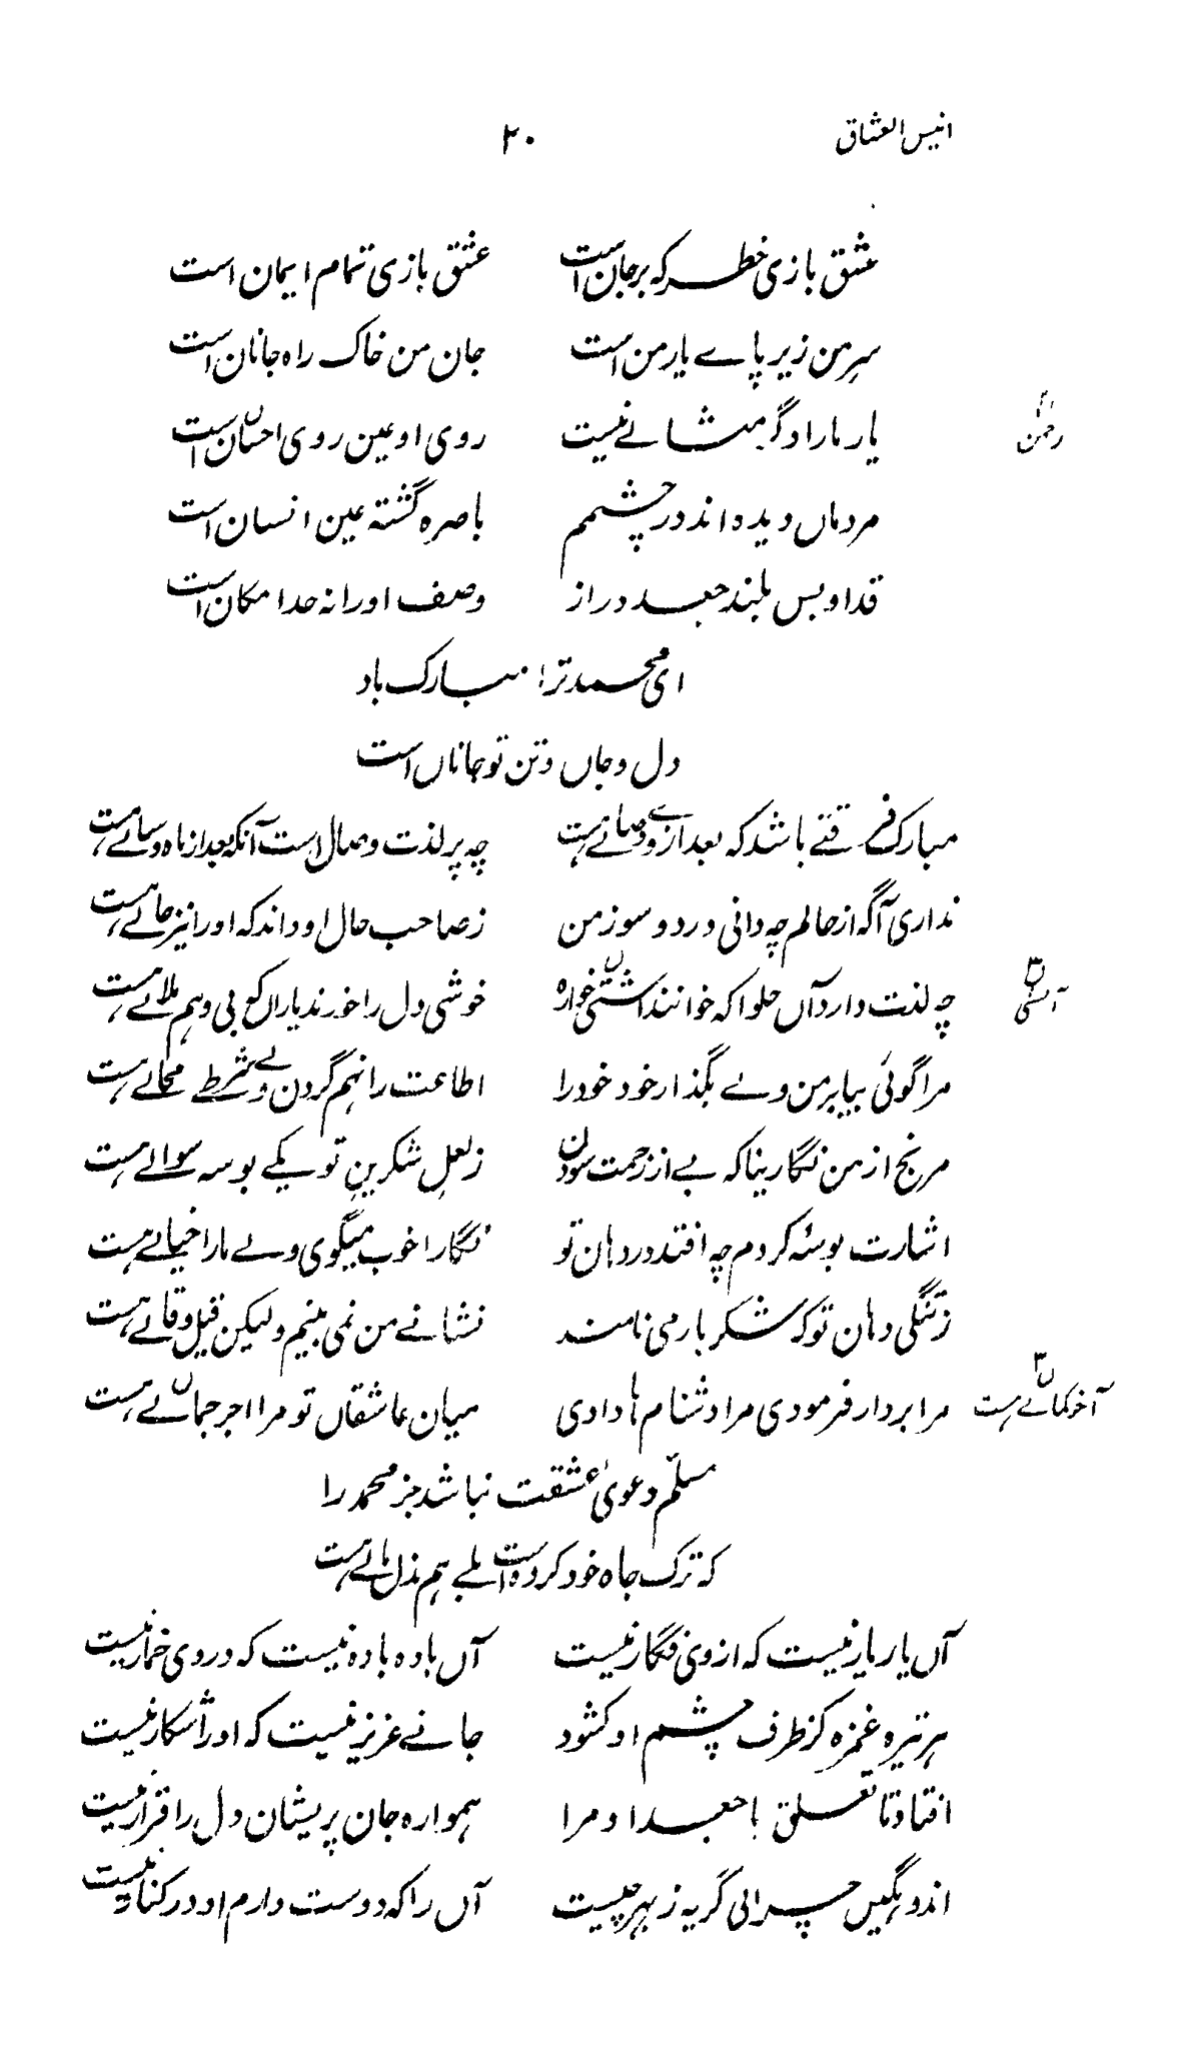 انیس العشاق ۲۰
عشق بازی خطر که بر جان است عشق بازی تمام ایمان است
سرِ من زیر پاے یار من است جان من خاک راه جانان است
یار ما را دگر مشانے نیست روی او عین روی احسان است
رحمن
مردماں دیده اند در چشمم باصره گشته عین انسان است
قد او بس بلند جعد دراز وصف او را نه حد امکان است
ای محمد ترا مبارک باد
دل و جاں و تن تو جاناں است
مبارک فرقتے باشد که بعد از وے وصالے هست چه پر لذت وصال است آنکه بعد از ماه و سالے هست
نداری آگه از حالم چه دانی درد و سوز من ز صاحب حال او داند که او را نیز حالے هست
چه لذت دارد آں حلوا که خوانند خواره خوشی دل را خورند یاراں که بی و هم ملالے هست
آشتی
مرا گوئی بیا بر من ولے بگذار خود خود را اطاعت را نهم گردن ولے شرطے محالے هست
مرنج از من نگارینا که بے از زحمت سودن ز لعلِ شکرینِ تو یکے بوسه سوالے هست
اشارت بوسۂ کردم چه افتد در دهان تو نگارا خوب میگوی ولے ما را خیالے هست
ز تنگی دهان تو که شکر بار می نامند نشانے من نمی بینم ولیکن قیل و قالے هست
مرا بردار فرمودی مرا دشنام ها دادی میان عاشقاں تو مرا اجر جمالے هست
آخر کمالے هست
مسلّم دعویٰ عشقت نباشد جز محمد را
که ترک جاه خود کرده است بلے هم بذل مالے هست
آں یار یار نیست که از وی فگار نیست آں باده باده نیست که در وی خمار نیست
هر تیره غمزه کز طرف چشم او کشود جانے عزیز نیست که او را شکار نیست
افتاد تا تعلق با جعد او مرا همواره جان پریشان دل را قرار نیست
اندوهگیں چرائی گریه ز بهر چیست آں را که دوست دارم او در کنار نیست